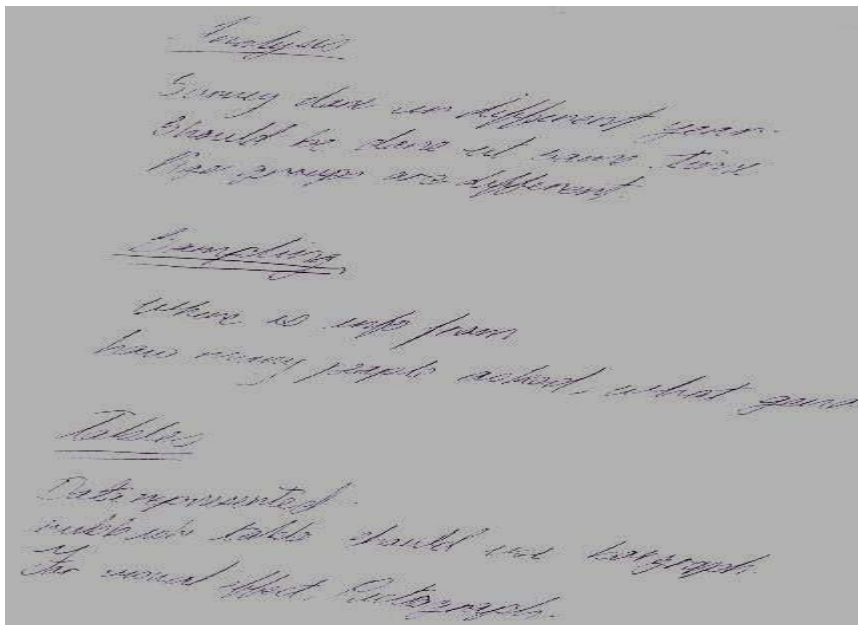 Analysis
Survey done in different years.
Should be done at same time
Age groups are different.
Sampling
where is info from
how many people asked, what
Tables
Data represented
table should use bargraph.
for visual effect. Pictograph.